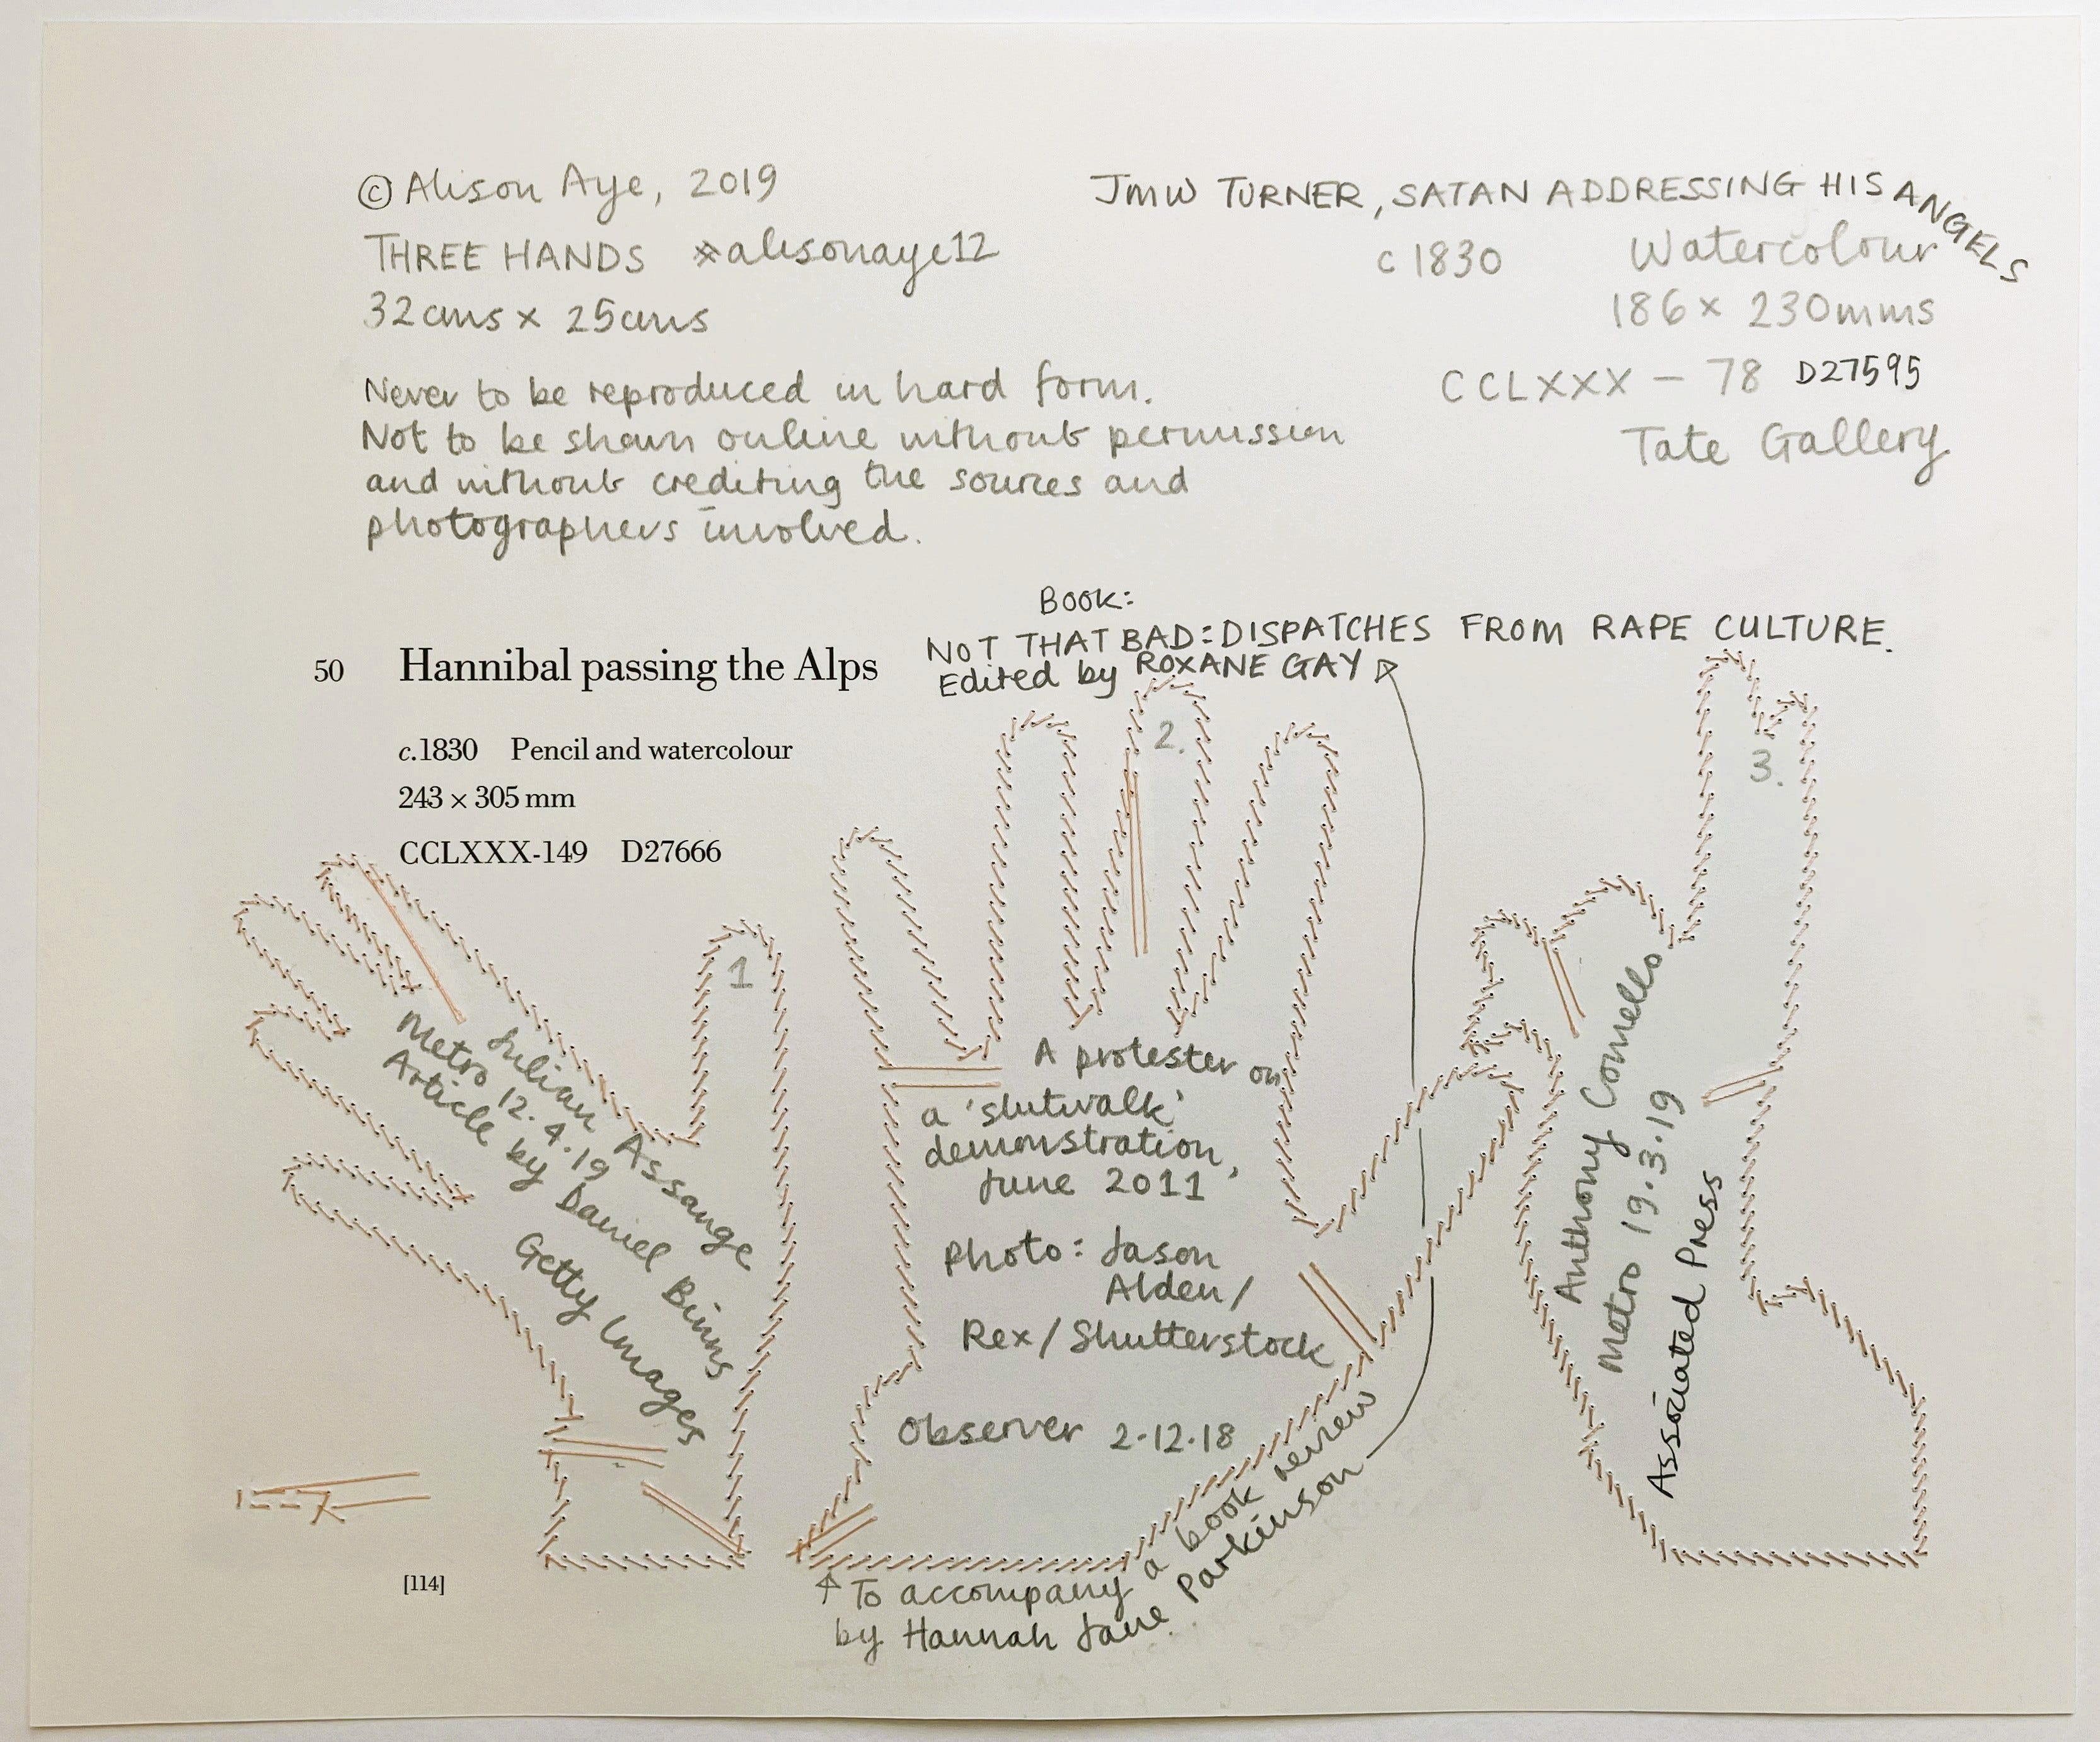 © Alison Aye, 2019
THREE HANDS *alisonaye12
32cms x 25cms
Never to be reproduced in hard form.
Not to be shown online without permission
and without crediting the sources and
photographers involved.
JMW TURNER, SATAN ADDRESSING HIS ANGELS
c 1830 Watercolour
186 x 230mms
CCLXXX - 78 D27595
Tate Gallery
BOOK:
NOT THAT BAD: DISPATCHES FROM RAPE CULTURE.
Edited by ROXANE GAY
50 Hannibal passing the Alps
c.1830 Pencil and watercolour
243 × 305 mm
CCLXXX-149 D27666
1
Julian Assange
Metro 12.4.19
Article by Daniel Binns
Getty Images
2.
A protester on
a 'slutwalk'
demonstration,
June 2011
Photo: Jason
Alden/
Rex/Shutterstock
Observer 2.12.18
To accompany a book review
by Hannah Jane Parkinson
3.
Anthony Connello
Metro 19.3.19
Associated Press
[114]